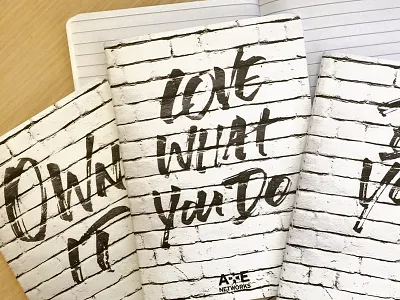 OWN
IT
LOVE
WHAT
You Do
A+E
NETWORKS